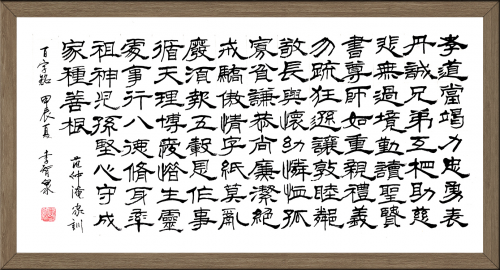 孝道當竭力忠勇表
丹誠兄弟互相助慈
悲無過境勤讀聖賢
書尊師如重親禮義
勿疏狂遜讓敦睦鄰
敬長與懷幼憐恤孤
寡貧謙恭尚廉潔絕
戒驕傲情字紙莫亂
廢須報五穀恩作事
循天理博愛惜生靈
處事行八德修身率
祖神児孫堅心守成
家種善根
范仲淹家訓
百字銘 甲辰夏 李